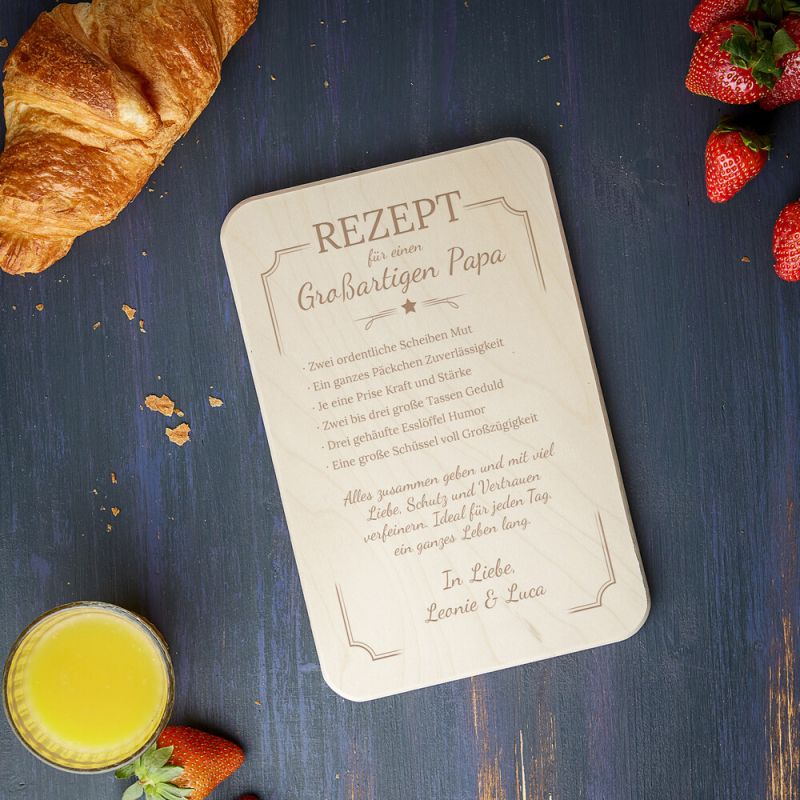 REZEPT
für einen
Großartigen Papa
· Zwei ordentliche Scheiben Mut
· Ein ganzes Päckchen Zuverlässigkeit
· Je eine Prise Kraft und Stärke
· Zwei bis drei große Tassen Geduld
· Drei gehäufte Esslöffel Humor
· Eine große Schüssel voll Großzügigkeit
Alles zusammen geben und mit viel
Liebe, Schutz und Vertrauen
verfeinern. Ideal für jeden Tag,
ein ganzes Leben lang.
In Liebe,
Leonie & Luca